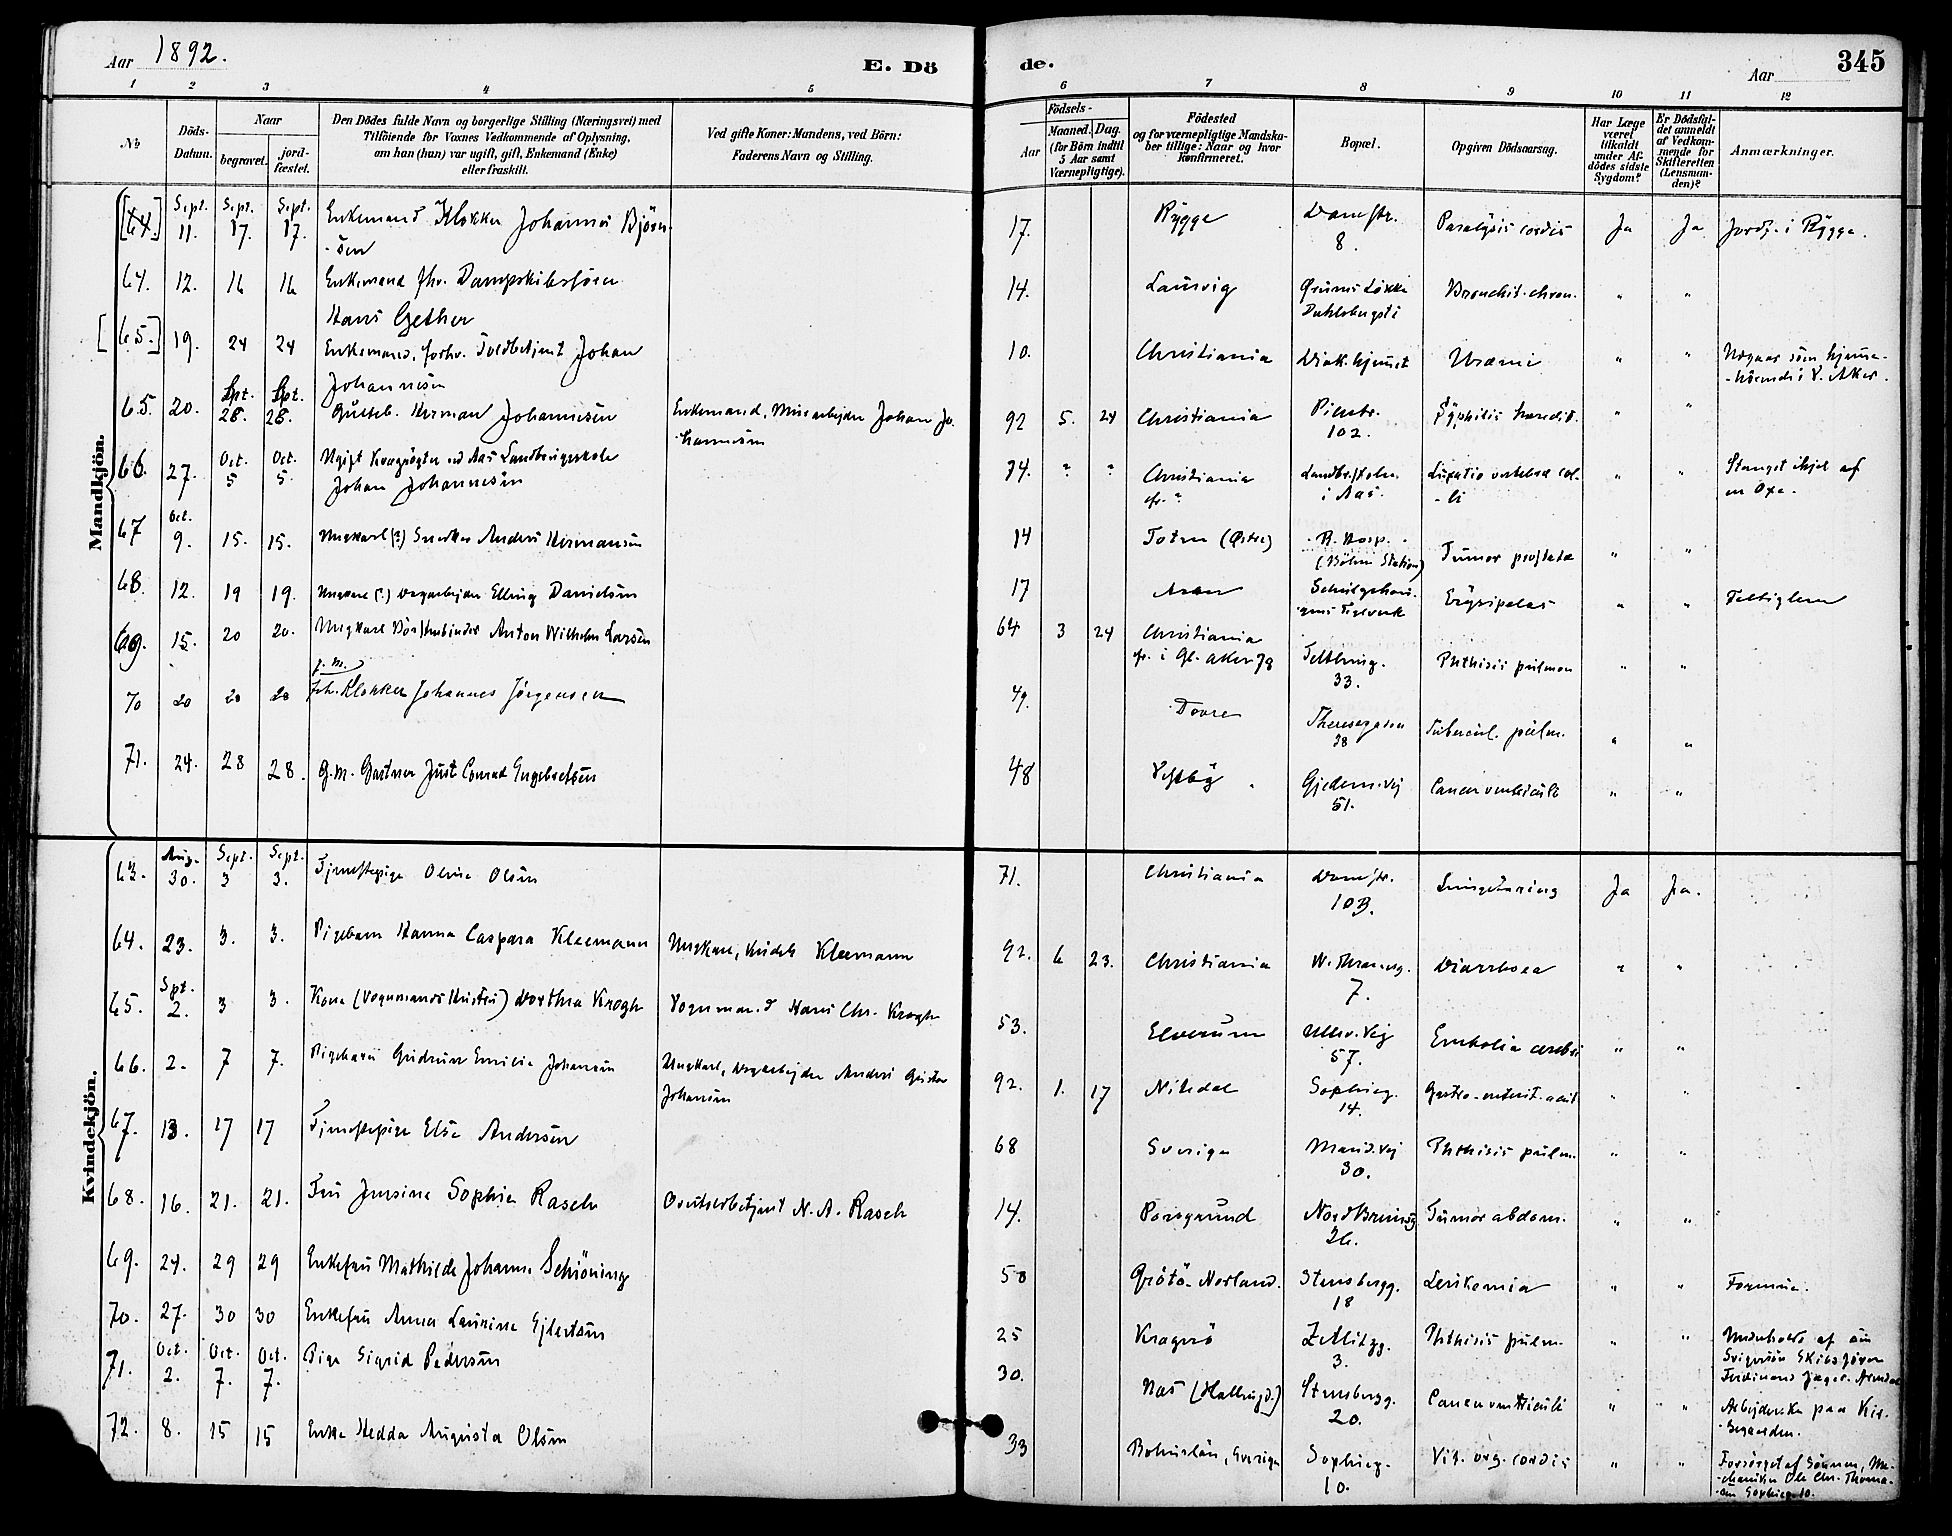 Aar 1892.
E. Dö
de.
Aar
345
1 2 3 4 5 6 7 8 9 10 11 12
No
Döds-
Datum.
Naar
begravet.
jord-
fæstet.
Den Dödes fulde Navn og borgerlige Stilling (Næringsvei) med
Tilföiende for Voxnes Vedkommende af Oplysning,
om han (hun) var ugift, gift, Enkemand (Enke)
eller fraskilt.
Ved gifte Koner: Mandens, ved Börn:
Faderens Navn og Stilling.
Födsels-
Aar
Maaned.
Dag.
(for Börn indtil
5 Aar samt
Værnepligtige).
Födested
og for værnepligtige Mandska-
ber tillige: Naar og hvor
Konfirmeret.
Bopæl.
Opgiven Dödsaarsag.
Har Læge
været
tilkaldt
under Af-
dödes sidste
Sygdom?
Er Dödsfal-
det anmeldt
af Vedkom-
mende for
Skifteretten
(Lensman-
den)?
Anmærkninger.
Mandkjön.
[64.] Sept. 11. Sept. 17. Sept. 17. Enkemand Klokker Johannes Björn-
-sen
17. Rygge 8. Paralysis cordis Ja Ja Jordf. i Rygge.
64. 12. 16 16 Enkemand fhv. Dampskibsförer
Hans Gether
14. Laurvig Bronchit. chron. " "
[65.] 19. 24 24 Enkemand, forhv. Toldbetjent Johan
Johannesen
10. Christiania Diak.hjemmet Uræmi " "
65. 20. Spt. 28. Spt. 28. Gutteb. Herman Johannesen Enkemand, Murarbejder Johan Jo-
-hannesen
92 5. 24 Christiania Pilestr. 102. Syphilis heredit. " "
66. 27. Oct. 5 Oct. 5. Ugift Kvægrögter ved Aas Landbrugsskole
Johan Johannesen
74. " " Christiania i Aas. Luxatio vertebra col-
-li " " Stanget ihjel af
en Oxe.
67 Oct. 9. 15. 15. Ungkarl (?) Snedker Anders Hermansen
14 Toten (Östre) R. Hosp. Tumor prostatæ " "
68. 12. 19 19. Ungkarl (?) Dagarbejder Elling Danielsen
17 Erysipelas " "
69. 15. 20 20. Ungkarl Börstenbinder Anton Wilhelm Larsen
64 3 24 Christiania
i Gl. Aker 78 33. Phthisis pulmon " "
70 20 20 20 g. m. fhv. Klokker Johannes Jörgensen
49. Dovre Theresegaden 38 Tubercul. pulm. " "
71. 24. 28 28. G. m. Gartner Just Conrad Engebretsen
48 Vestby 51. Cancer ventriculi " "
Kvindekjön.
63. Aug. 30. Sept. 3 Sept. 3. Tjenestepige Oline Olsen
71. Christiania 10 B. Ja Ja.
64. 23. 3. 3. Pigebarn Hanna Caspara Kleemann Ungkarl, Kleemann
92. 6 23. Christiania 7. Diarrhoea " "
65. Spt. 2. 3 3. Kone (Vognmands Hustru) Dorthea Krogh Vognmand Hans Chr. Krogh
53. Elverum Ullev. Vej 57. Embolia cerebri " "
66. 2. 7 7. Pigebarn Gudrun Emilie Johansen Ungkarl, Dagarbejder Anders Gustav
Johansen
92. 1. 17 Nitedal Sophieg. 14. Gastro-enterit. acut " "
67. 13. 17 17 Tjenestepige Else Andersen
68 Sverige Marid. Vej 30. Phthisis pulm. " "
68. 16. 21. 21. Fru Jensine Sophie Rasch N. A. Rasch
14. Porsgrund 26. Tumor abdom. " "
69. 24. 29 29 Enkefru Mathilde Johanne Schiöning
50 Grötö Norland. Stensbergg. 18 Leukemia " " Formue.
70. 27. 30 30 Enkefru Anna Laurine Ejlertsen
25 Kragerö Zetlitzg. 3. Phthisis pulm. " " Underholdt af sin
Svigersön Skibsförer
Ferdinand Jæger. Arendal
71. Oct. 2. Oct. 7. Oct. 7. Pige Sigrid Pedersen
30. Næs (Hallingd.) Stensbergg. 20. Cancer ventriculi " "
72. 8. 15 15 Enke Hedda Augusta Olsen
33 Bohuslän, Sverige Sophieg. 10. Vit. org. cordis " " Forsörget af Sönnen, Me-
-chaniker Ole Chr. Thoma-
-sen Sophieg. 10.